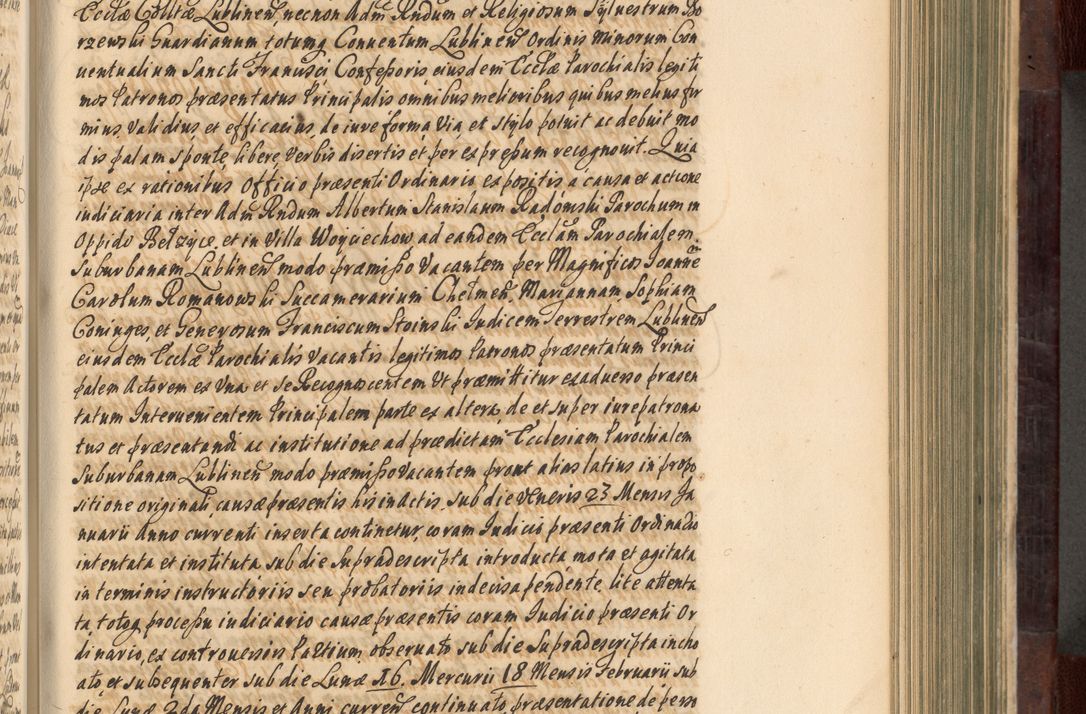 Ecclæ Collttæ Lublineñ, necnon Adm̃ Rndum et Religiosum Sylvestrum Bo
rzewski Guardianum totumq Conventum Lublineñ Ordinis Minorum Con
ventualium Sancti Francisci Confessoris eiusdem Ecclæ Parochialis legiti
mos Patronos præsentatus Principalis omnibus melioribus quibus melius fir
mius, validius et efficacius, de iure forma via et stylo potuit ac debuit mo
dis palam sponte, libere, verbis disertis et per expressum recognovit. Quia
ipse ex rationibus Officio præsenti Ordinario expositis a causa et actione
iudiciaria inter Adm̃ Rndum Albertum Stanislaum Radomski Parochum in
Oppido Bełzyce, et in Villa Woyciechow ad eandem Ecclam Parochialem
Suburbanam Lublineñ modo præmisso vacantem per Magnificos Joannem
Carolum Romanowski Succamerarium Chelmeñ, Mariannam Sophiam
Coniuges, et Generosum Franciscum Stoinski Iudicem Terrestrem Lublineñ
eiusdem Ecclæ Parochialis vacantis legitimos Patronos præsentatum Princi
palem Actorem ex una et se Recognoscentem ut præmittitur ex adverso præsen
tatum Intervenientem Principalem parte ex altera, de et super iurepatrona
tus et præsentandi ac institutione ad prædictam Ecclesiam Parochialem
Suburbanam Lublineñ modo præmisso vacantem prout alias latius in propo
sitione originali causæ præsentis his in Actis sub die Veneris 23 Mensis Ja
nuarii Anno currenti inserta continetur, coram Iudicio præsenti Ordinario
intentata et instituta sub die supradescripta introducta mota et agitata
in terminis instructoriis seu probatoriis indecisa pendente lite attenta
ta, totoq processu iudiciario causæ præsentis coram Iudicio præsenti Or
dinario, ex controversiis Partium observato sub die supradescripta incho
ato, et subsequenter sub die Lunæ 16. Mercurii 18 Mensis Februarii sub
die Lunæ 2da Mensis et Anni curreñ continuato præsentatione de perso